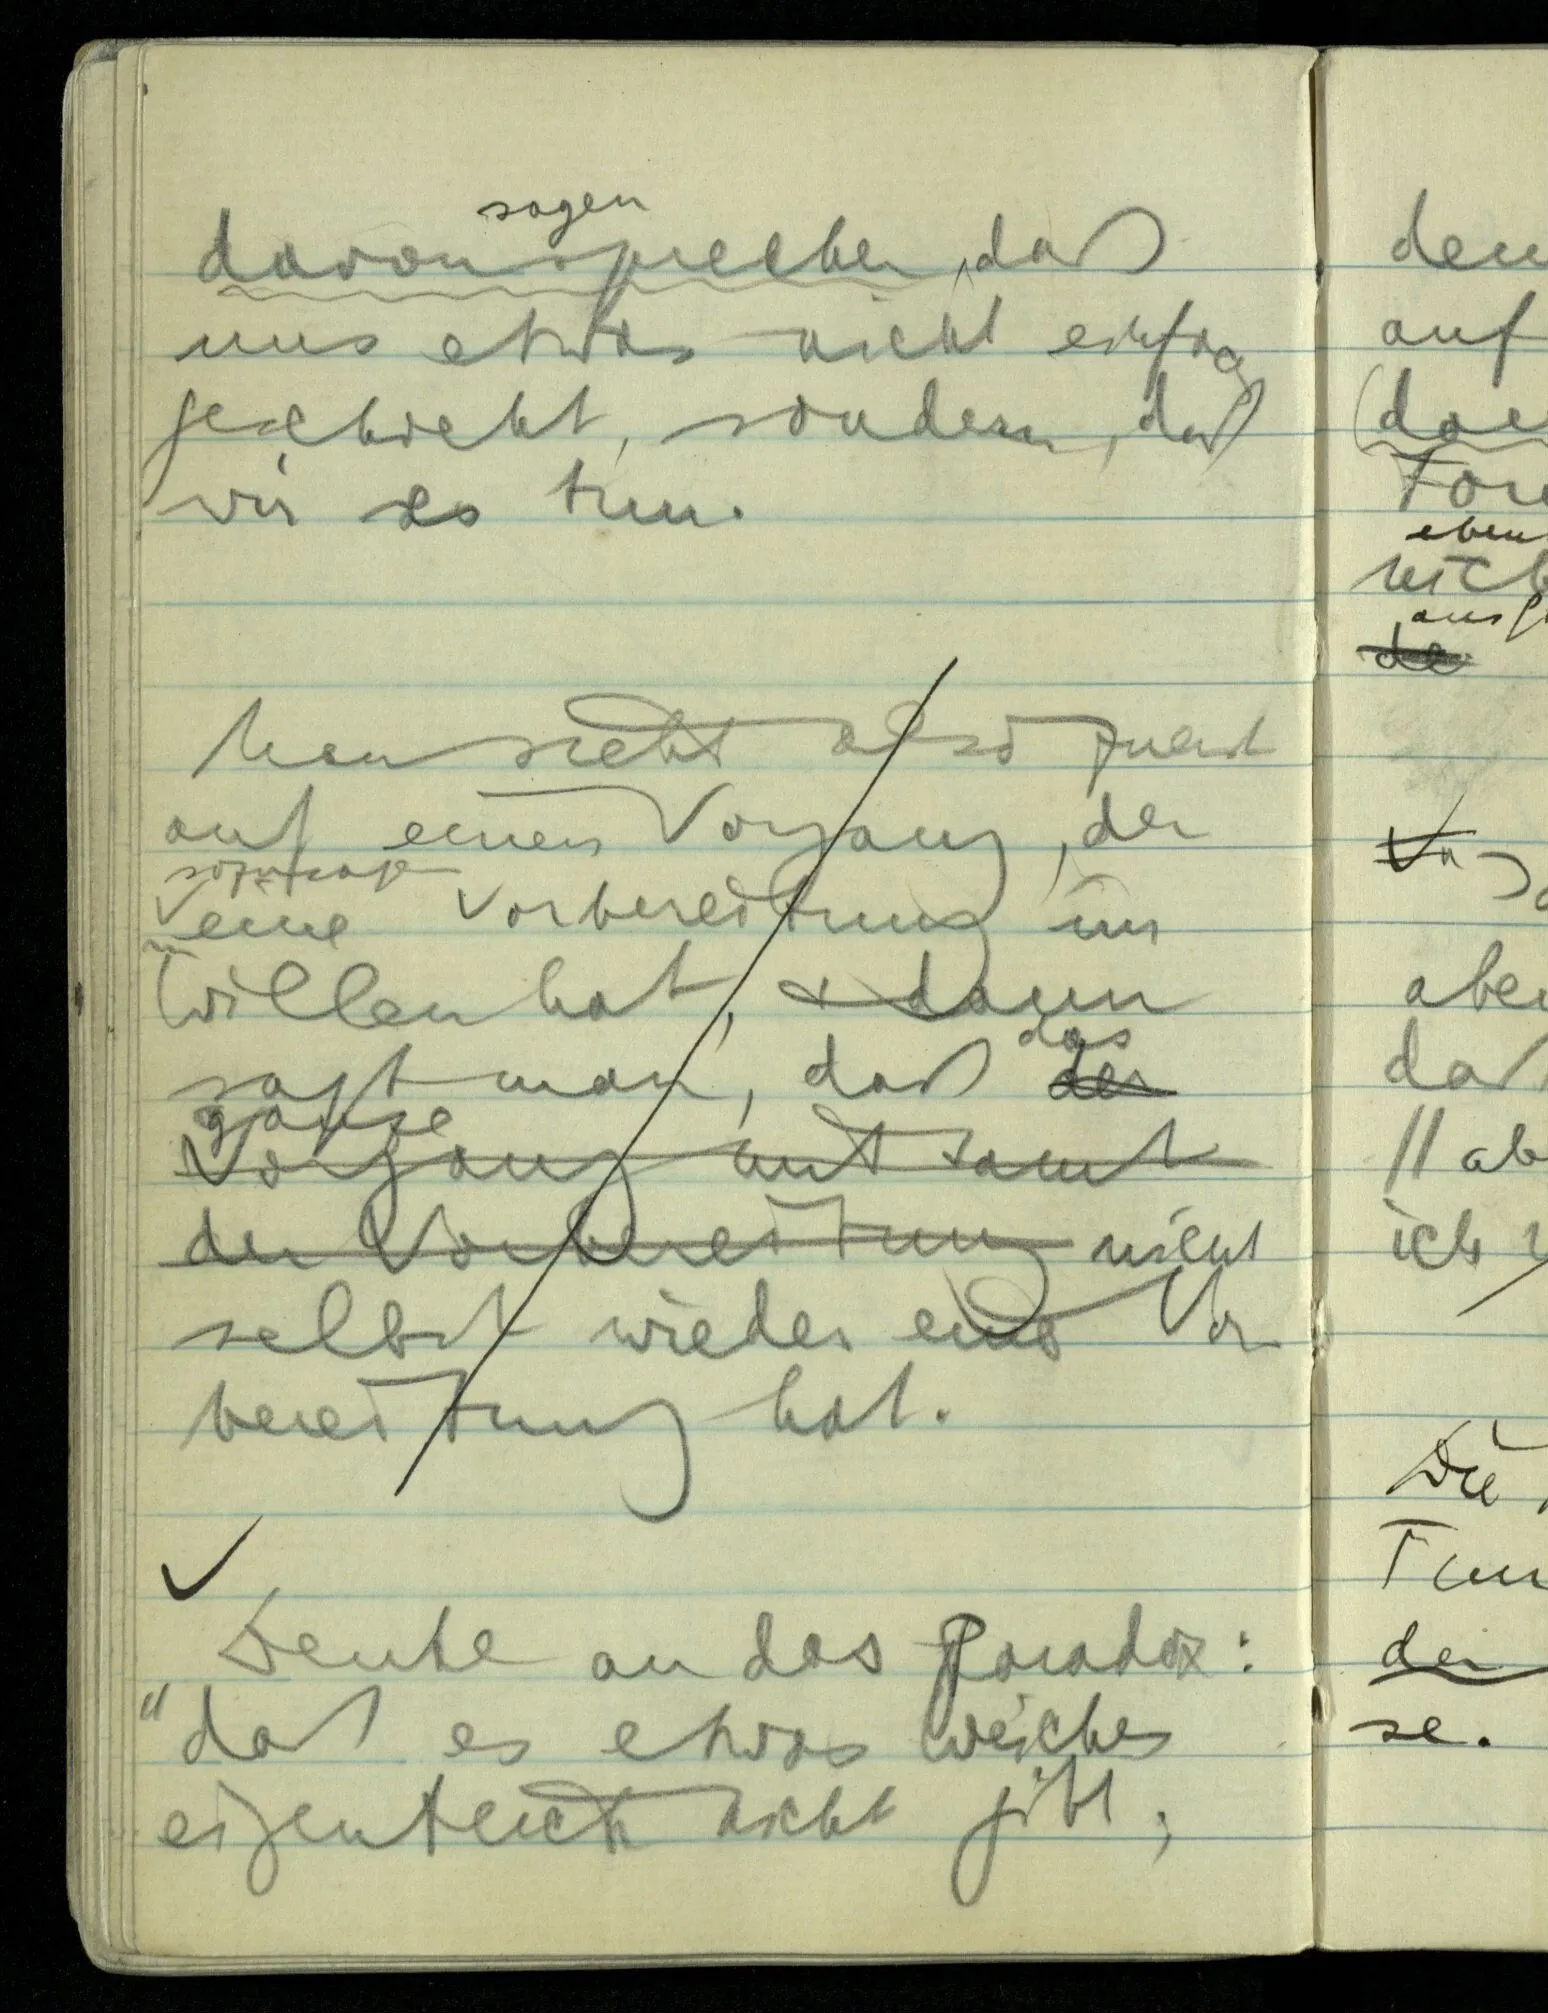 sagen
davon sprechen, daß
uns etwas nicht einfach
geschieht, sondern, daß
wir es tun.
Man sieht also zuerst
auf einen Vorgang, der
sozusagen
eine Vorbereitung im
Willen hat, & dann
das
sagt man, daß der
ganze
Vorgang mit samt
der Vorbereitung nicht
selbst wieder eine Vor
bereitung hat.
Denke an das Paradox:
"daß es etwas weiches
eigentlich nicht gibt,
den
auf
eben
aben
daß
// ab
ich
Die
der
se.